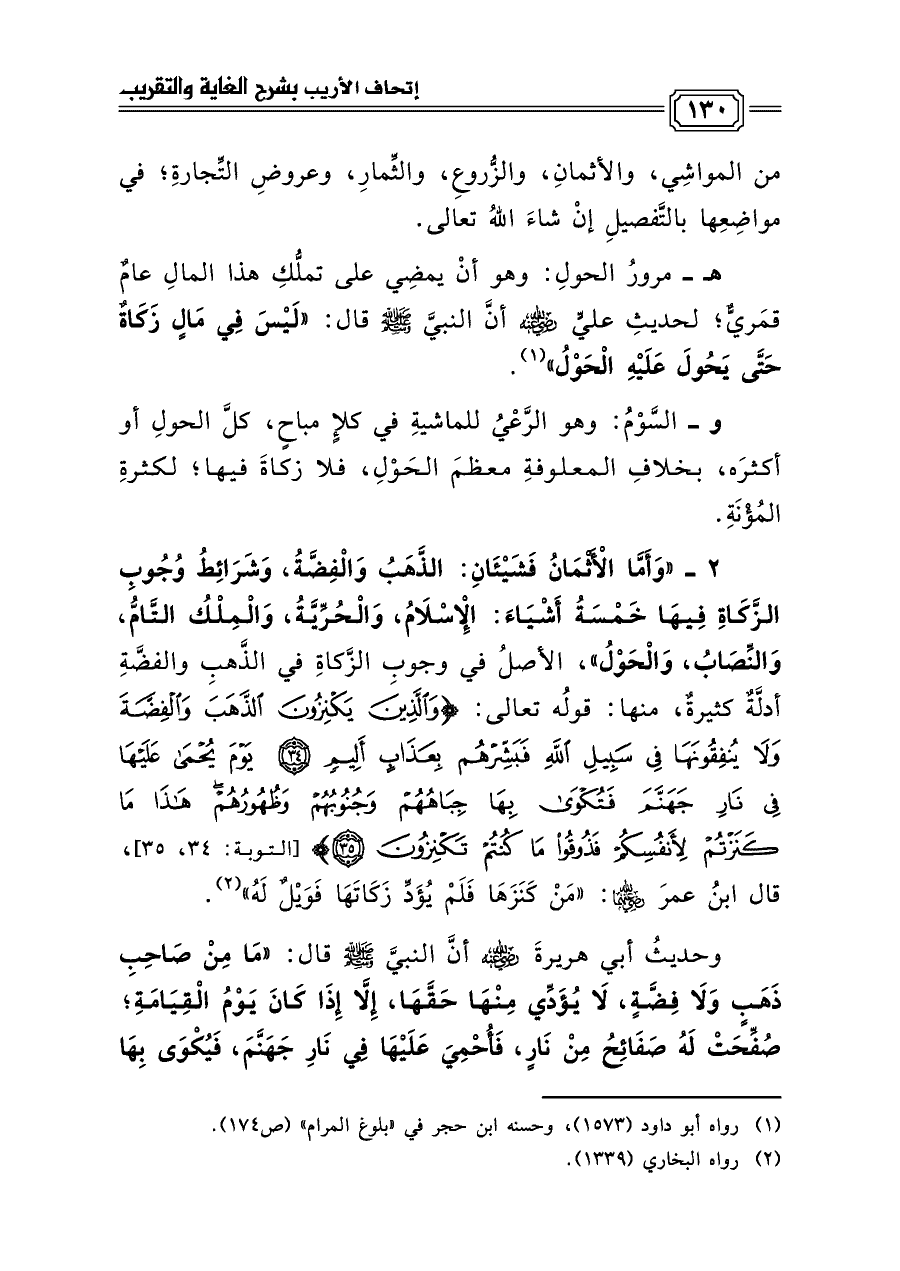 إتحاف الأريب بشرح الغاية والتقريب
١٣٠
من المواشِي، والأثمانِ، والزُّروعِ، والثِّمارِ، وعروضِ التِّجارةِ؛ في
مواضِعِها بالتَّفصيلِ إنْ شاءَ اللهُ تعالى.
هـ ـ مرورُ الحولِ: وهو أنْ يمضِي على تملُّكِ هذا المالِ عامٌ
قمَريٌّ؛ لحديثِ عليٍّ رضي الله عنه أنَّ النبيَّ ﷺ قال: «لَيْسَ فِي مَالٍ زَكَاةٌ
حَتَّى يَحُولَ عَلَيْهِ الْحَوْلُ»(١).
و ـ السَّوْمُ: وهو الرَّعْيُ للماشيةِ في كلإٍ مباحٍ، كلَّ الحولِ أو
أكثرَه، بخلافِ المعلوفةِ معظمَ الحَوْلِ، فلا زكاةَ فيها؛ لكثرةِ
المُؤْنَةِ.
٢ ـ «وَأَمَّا الْأَثْمَانُ فَشَيْئَانِ: الذَّهَبُ وَالْفِضَّةُ، وَشَرَائِطُ وُجُوبِ
الزَّكَاةِ فِيهَا خَمْسَةُ أَشْيَاءَ: الْإِسْلَامُ، وَالْحُرِّيَّةُ، وَالْمِلْكُ التَّامُّ،
وَالنِّصَابُ، وَالْحَوْلُ»، الأصلُ في وجوبِ الزَّكاةِ في الذَّهبِ والفضَّةِ
أدلَّةٌ كثيرةٌ، منها: قولُه تعالى: ﴿وَٱلَّذِينَ يَكْنِزُونَ ٱلذَّهَبَ وَٱلْفِضَّةَ
وَلَا يُنفِقُونَهَا فِى سَبِيلِ ٱللَّهِ فَبَشِّرْهُم بِعَذَابٍ أَلِيمٍ ٣٤ يَوْمَ يُحْمَىٰ عَلَيْهَا
فِى نَارِ جَهَنَّمَ فَتُكْوَىٰ بِهَا جِبَاهُهُمْ وَجُنُوبُهُمْ وَظُهُورُهُمْ ۖ هَٰذَا مَا
كَنَزْتُمْ لِأَنفُسِكُمْ فَذُوقُوا۟ مَا كُنتُمْ تَكْنِزُونَ ٣٥﴾ [التوبة: ٣٤، ٣٥]،
قال ابنُ عمرَ رضي الله عنهما: «مَنْ كَنَزَهَا فَلَمْ يُؤَدِّ زَكَاتَهَا فَوَيْلٌ لَهُ»(٢).
وحديثُ أبي هريرةَ رضي الله عنه أنَّ النبيَّ ﷺ قال: «مَا مِنْ صَاحِبِ
ذَهَبٍ وَلَا فِضَّةٍ، لَا يُؤَدِّي مِنْهَا حَقَّهَا، إِلَّا إِذَا كَانَ يَوْمُ الْقِيَامَةِ؛
صُفِّحَتْ لَهُ صَفَائِحُ مِنْ نَارٍ، فَأُحْمِيَ عَلَيْهَا فِي نَارِ جَهَنَّمَ، فَيُكْوَى بِهَا
(١) رواه أبو داود (١٥٧٣)، وحسنه ابن حجر في «بلوغ المرام» (ص١٧٤).
(٢) رواه البخاري (١٣٣٩).